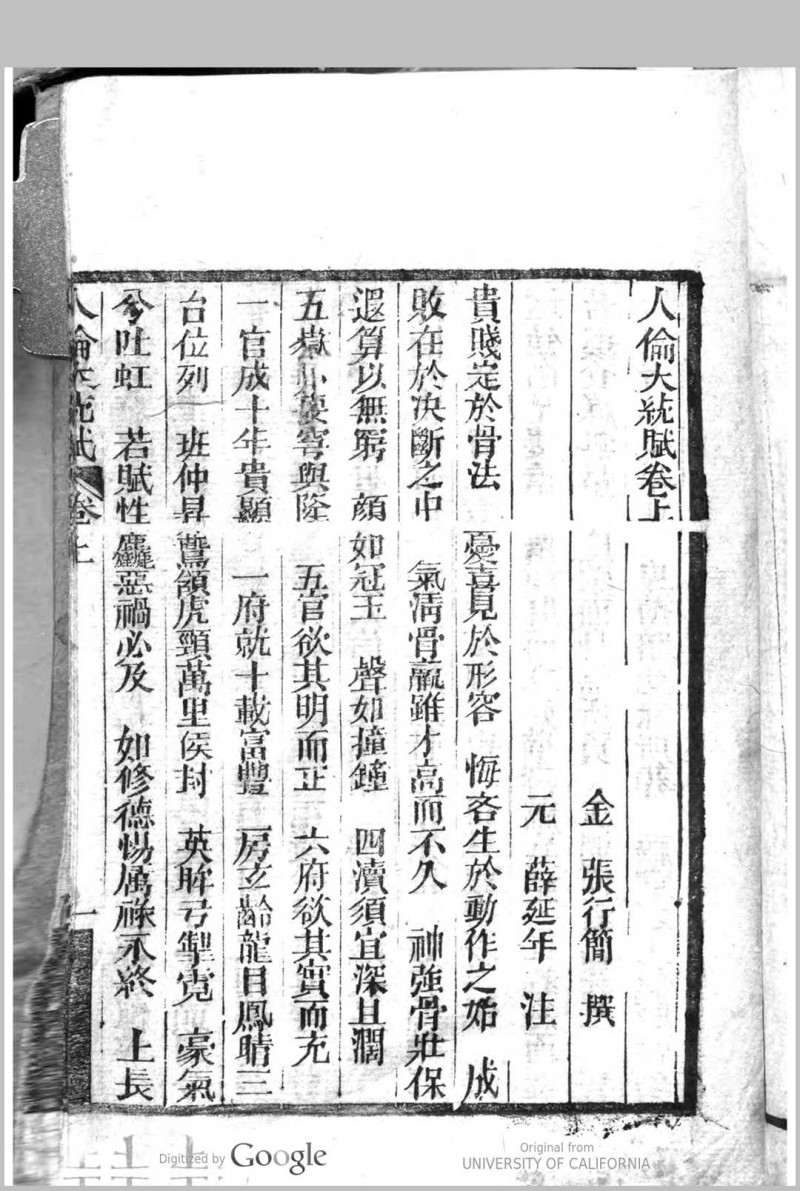 人倫大統賦卷上
金　張行簡　撰
元　薛延年　注
貴賤定於骨法　憂喜見於形容　悔吝生於動作之始　成
敗在於决斷之中　氣清骨羸雖才高而不久　神強骨壯保
遐算以無窮　顔如冠玉　聲如撞鐘　四瀆須宜深且濶
五嶽必要穹與隆　五官欲其明而正　六府欲其實而充
一官成十年貴顯　一府就十載富豐　房玄齡龍目鳳睛三
台位列　班仲昇鷰頷虎頸萬里侯封　英眸弓掣寛　豪氣
兮吐虹　若賦性麤惡禍必及　如修德惕厲祿永終　上長
人倫大統賦　卷上
一
Digitized by Google
Original from
UNIVERSITY OF CALIFORNIA